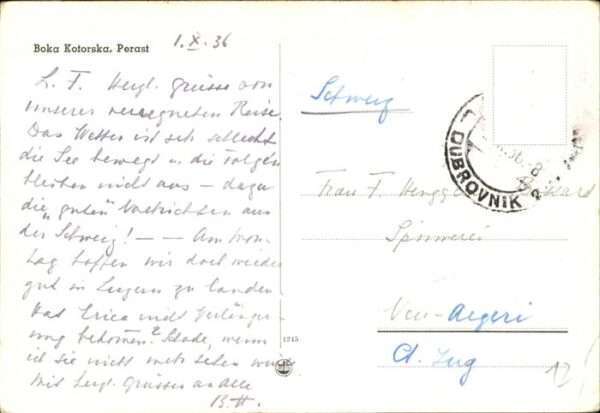 Boka Kotorska, Perast
1.X.36
L. F. Herzl. Grüsse von
unserer verregneten Reise.
Das Wetter ist sehr schlecht
die See bewegt u. die Folgen
bleiben nicht aus – dazu
die "guten" Nachrichten aus
der Schweiz! — — Am Mon-
tag hoffen wir doch wieder
gut in Luzern zu landen
Hat Erica noch
bekommen? Schade, wenn
ich sie nicht mehr sehen
Mit herzl. Grüssen an alle
B.H.
Schweiz
DUBROVNIK 2
36-8
Frau F. Hengge
Spinnerei
Neu-Aegeri
Ct. Zug
1215
12